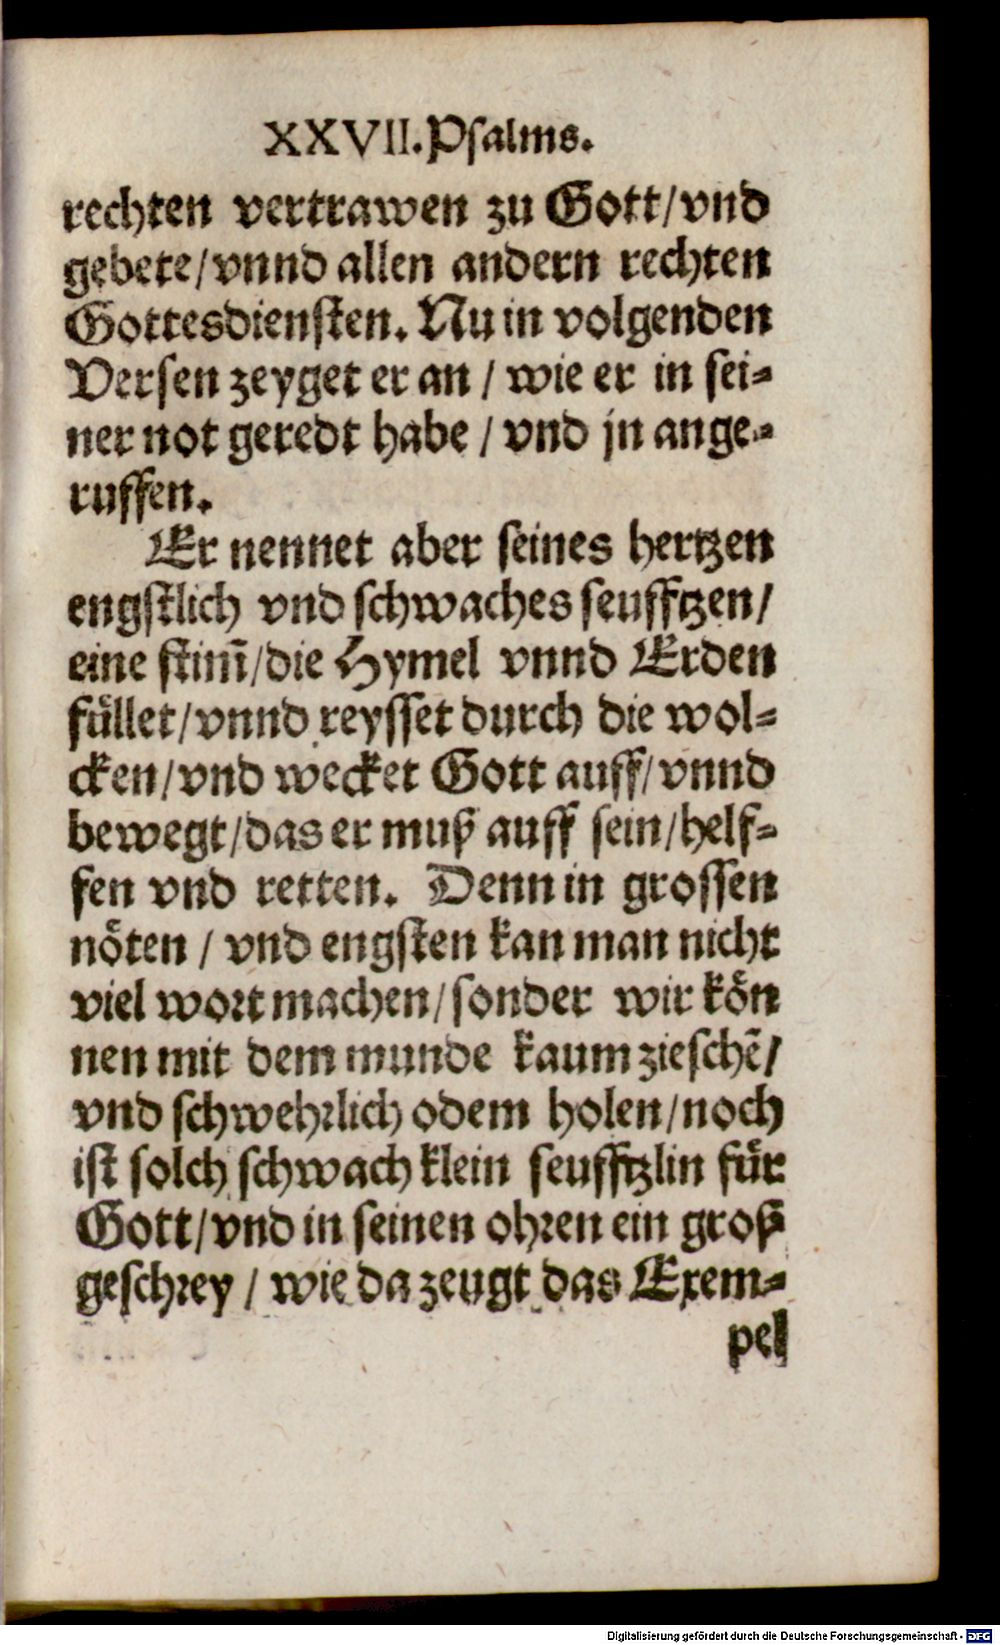 XXVII. Psalms.
rechten vertrawen zu Gott/vnd
gebete/vnnd allen andern rechten
Gottesdiensten. Nu in volgenden
Versen zeyget er an / wie er in sei⸗
ner not geredt habe / vnd jn ange⸗
ruffen.
Er nennet aber seines hertzen
engstlich vnd schwaches seufftzen/
eine stim̄/die Hymel vnnd Erden
fuͤllet/vnnd reysset durch die wol⸗
cken/vnd wecket Gott auff/vnnd
bewegt/das er muß auff sein/helf⸗
fen vnd retten. Denn in grossen
noͤten / vnd engsten kan man nicht
viel wort machen/sonder wir koͤn
nen mit dem munde kaum zieschē/
vnd schwehrlich odem holen/noch
ist solch schwach klein seufftzlin fuͤr
Gott/vnd in seinen ohren ein groß
geschrey / wie da zeugt das Exem⸗
pel
Digitalisierung gefördert durch die Deutsche Forschungsgemeinschaft - DFG